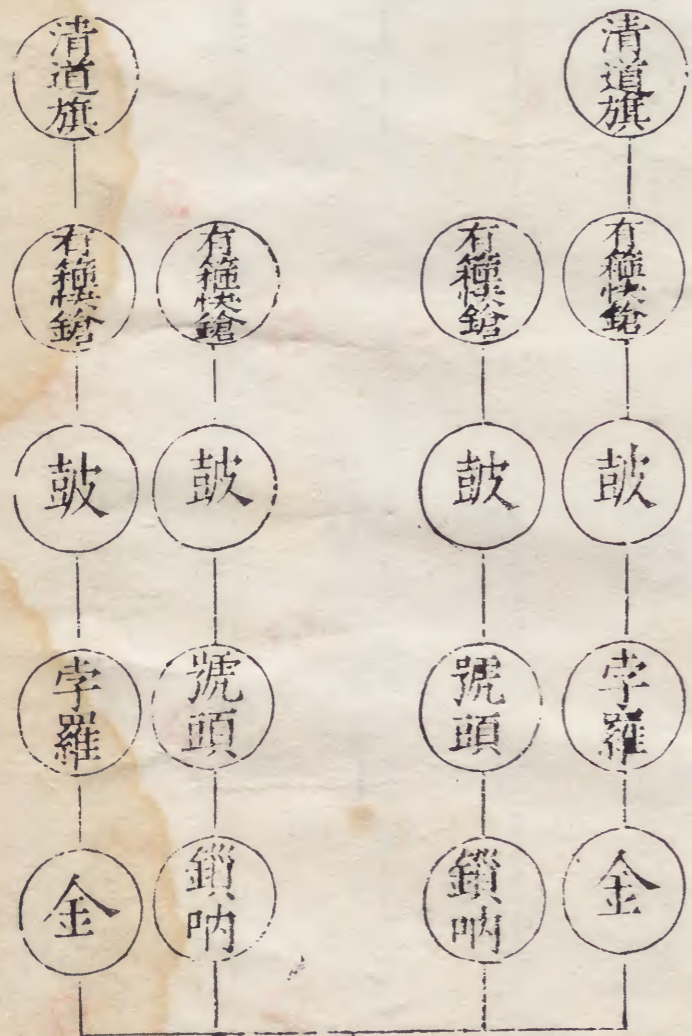 清道旗
有快鎗
皷
孛羅
金
有快鎗
皷
號頭
鎖吶
有快鎗
皷
號頭
鎖吶
清道旗
有快鎗
皷
孛羅
金